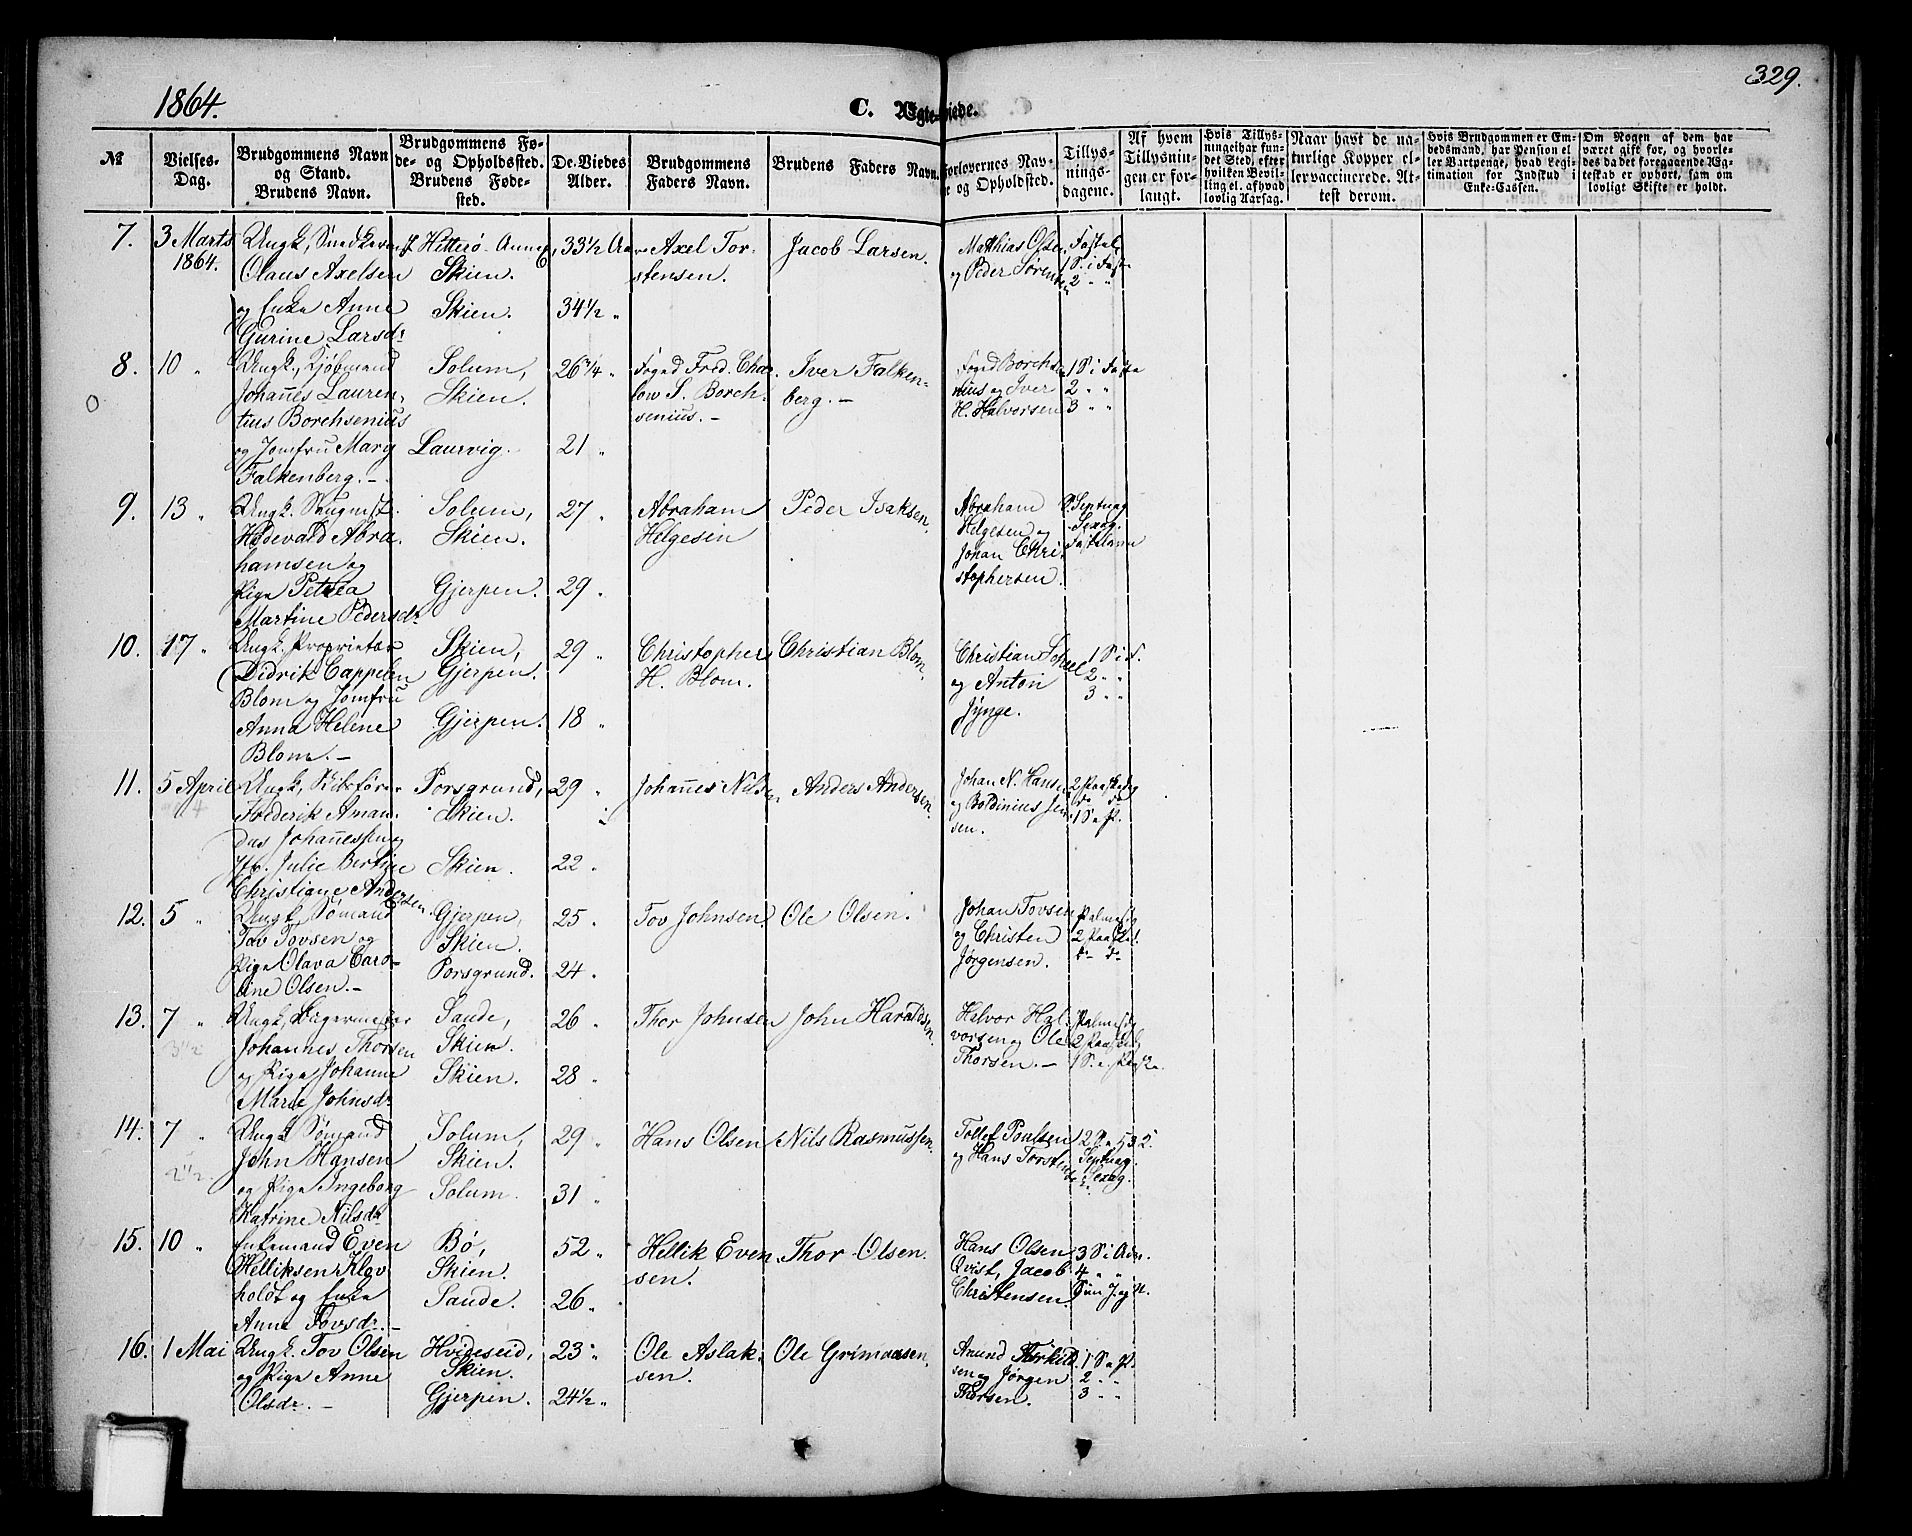 1864.
C. Ægteviede.
329.
№
Vielses-
Dag.
Brudgommens Navn
og Stand.
Brudens Navn.
Brudgommens Fø-
de- og Opholdssted.
Brudens Føde-
sted.
De Viedes
Alder.
Brudgommens
Faders Navn.
Brudens Faders Navn.
Forlovernes Nav-
ne og Opholdsted.
Tillys-
nings-
dagene.
Af hvem
Tillysnin-
gen er for-
langt.
Hvis Tillys-
ningel har fun-
det Sted, efter
hvilken Bevil-
ling el. af hvad
lovlig Aarsag.
Naar havt de na-
turlige Kopper el-
ler vaccinerede. At-
test derom.
Hvis Brudgommen er Em-
bedsmand, har Pension el-
ler Vartpenge, hvad Legi-
timation for Indskud i
Enke-Cassen.
Om Nogen af dem har
været gift for, og hvorle-
des da det foregaaende Æg-
teskab er ophørt, sam om
lovlige Skifte er holdt.
7. 3 Marts
1864.
Ungk, Snedkersv.
Olaus Axelsen
og Enke Anne
Gurine Larsdr
Hitterø
Skien.
Skien.
33½ Aar
34½ "
Axel Tor-
stensen.
Jacob Larsen.
Matthias Olsen
og Peder Sørensen
Fastel.
1 S. i Faste
2 " "
8. 10 "
Ungk, Kjøbmand
Johañes Lauren-
tius Borchsenius
og Jomfru Mary
Falkenberg.-
Solum,
Skien.
Laurvig.
26¾ "
21 "
Foged Fred. Char-
low S. Borch-
senius.-
Iver Falken-
berg.-
Foged Borchse-
nius og Iver
H. Halvorsen
1 S. i Faste
2 " "
3 " "
9. 13 "
Ungk. Saugmst.
Hildevald Abra-
hamsen og
Pige Petrea
Martine Pedersdr
Solum,
Skien.
Gjerpen.
27 "
29 "
Abraham
Helgesen
Peder Isaksen.
Abraham
Helgesen og
Johan Chri-
stophersen.
S. Septuag
Sexag.
Fastelavn
10. 17 "
Ungk. Proprietær
Didrik Cappelen
Blom og Jomfru
Anna Helene
Blom.-
Skien,
Gjerpen.
Gjerpen.
29 "
18 "
Christopher
H. Blom.
Christian Blom.
Christian Scheel
og Anton
Jynge.
1 S. i F.
2 " "
3 " "
11. 5 April
Ungk, Skibsfører
Frederik Aman-
dus Johañessen og
Jfr. Julie Bertine
Christiane Andersen.
Porsgrund,
Skien.
Skien.
29 "
22 "
Johañes Nilsen
Anders Andersen.
Johan N. Hansen
og Boldinius Jen-
sen.
2 Paaskedag
do do
1 S. e. P.
12. 5 "
Ungk, Sømand
Tov Tovsen og
Pige Olava Caro-
line Olsen.-
Gjerpen,
Skien.
Porsgrund.
25 "
24 "
Tov Johnsen.
Ole Olsen.
Johan Tovsen
og Christen
Jørgensen.
Palmesdg
2 Paaskd.
do do
13. 7 "
3½
Ungk, Bagermester
Johannes Thorsen
og Pige Johanne
Marie Johnsdr
Sande,
Skien.
Skien.
26 "
28 "
Thor Johnsen
John Haraldsen.
Halvor Hal-
vorsen og Ole
Thorsen.-
Palmesdg
2 Paaskd.
1 S. e. Paaske.
14. 7 "
2½
Ungk Sømand
John Hansen
og Pige Ingeborg
Katrine Nilsdr
Solum,
Skien.
Solum.
29 "
31 "
Hans Olsen
Nils Rasmussen.
Tollef Poulsen
og Hans Torsten-
sen.
Septuag.
Sexag.
15. 10 "
Enkemand Even
Helliksen Klov-
holdt og Enke
Anne Tovsdr.-
Bø,
Skien.
Sande.
52 "
26 "
Hellik Even-
sen.
Thor Olsen.
Hans Olsen
Qvist, Jacob
Christensen.
3 S. i Adv.
4 " "
Søn J. og N.
16. 1 Mai
Ungk. Tov Olsen
og Pige Anne
Olsdr.-
Hvideseid,
Skien.
Gjerpen.
23 "
24½ "
Ole Aslak-
sen.
Ole Grimaasen.
Amund Terkild-
sen og Jørgen
Thorsen.
1 S. e. P.
2 " "
3 " "